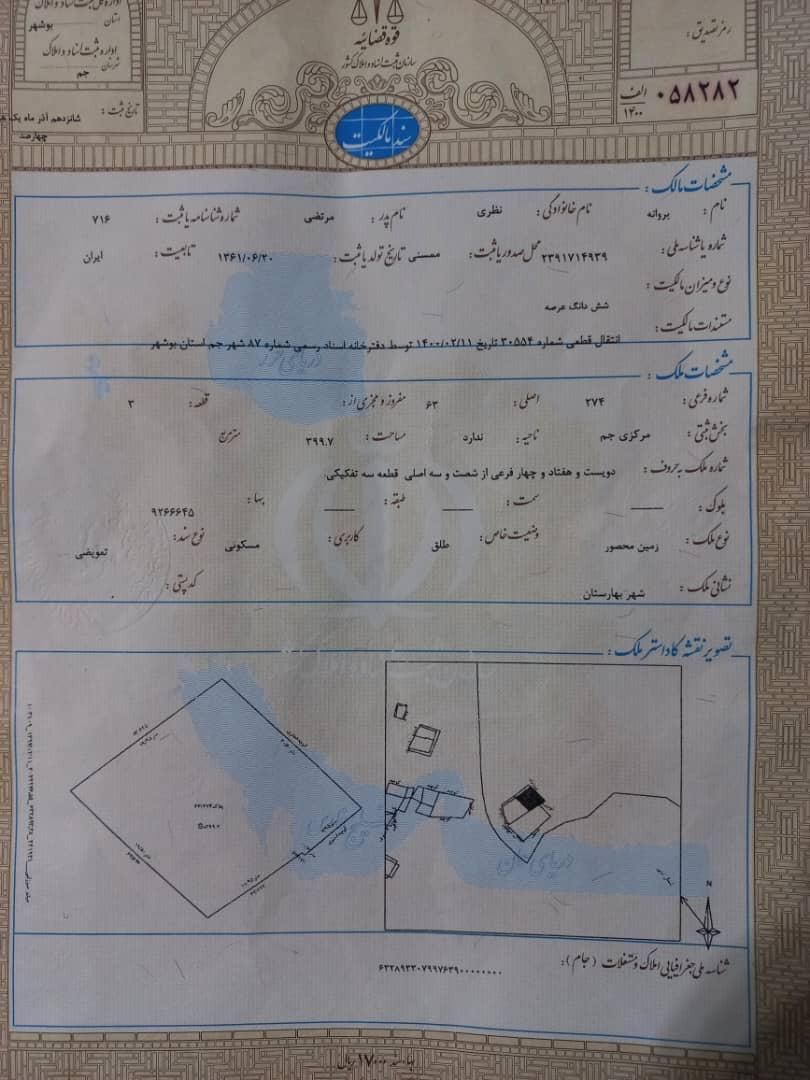 اداره کل ثبت اسناد و املاک
استان بوشهر
اداره ثبت اسناد و املاک
شهرستان جم
تاریخ ثبت :
شانزدهم آذر ماه یک
چهارصد
قوه قضائیه
سازمان ثبت اسناد و املاک کشور
سند مالکیت
رمز تصدیق :
۰۵۸۲۸۲ الف ۱۴۰۰
مشخصات مالک :
نام : پروانه نام خانوادگی : نظری نام پدر : مرتضی شماره شناسنامه یا ثبت : ۷۱۶
شماره یا شناسه ملی : ۲۳۹۱۷۱۴۹۳۹ محل صدور یا ثبت : ممسنی تاریخ تولد یا ثبت : ۱۳۶۱/۰۶/۲۰ تابعیت : ایران
نوع و میزان مالکیت :
شش دانگ عرصه
مستندات مالکیت :
انتقال قطعی شماره ۳۰۵۵۴ تاریخ ۱۴۰۰/۰۲/۱۱ توسط دفترخانه اسناد رسمی شماره ۸۷ شهر جم استان بوشهر
مشخصات ملک :
شماره فرعی : ۲۷۴ اصلی : ۶۳ مفروز و مجزی از : قطعه : ۳
بخش ثبتی : مرکزی جم ناحیه : ندارد مساحت : ۳۹۹.۷ متر مربع
شماره ملک به حروف : دویست و هفتاد و چهار فرعی از شصت و سه اصلی قطعه سه تفکیکی.
بلوک : سمت : طبقه : بها : ۹۲۶۶۶۴۵
نوع ملک : زمین محصور وضعیت خاص : طلق کاربری : مسکونی نوع سند : تعویضی
نشانی ملک : شهر بهارستان کد پستی :
تصویر نقشه کاداستر ملک :
دریای خزر
خلیج فارس
دریای عمان
N
شناسه ملی جغرافیایی املاک و مستغلات (جام) : ۶۳۲۸۹۳۳۰۷۹۹۷۶۳۹۰۰۰۰۰۰۰۰
بها سند ۱۷۰۰۰ ریال